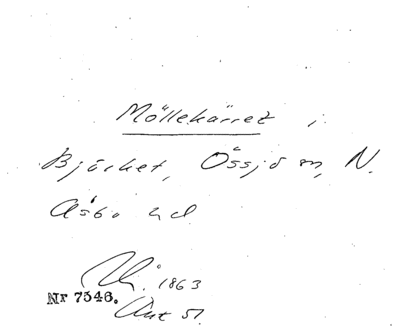 Möllekärret i
Bjäret, Össjö sn, N.
Åsbo hd
1863
Nr 7546.